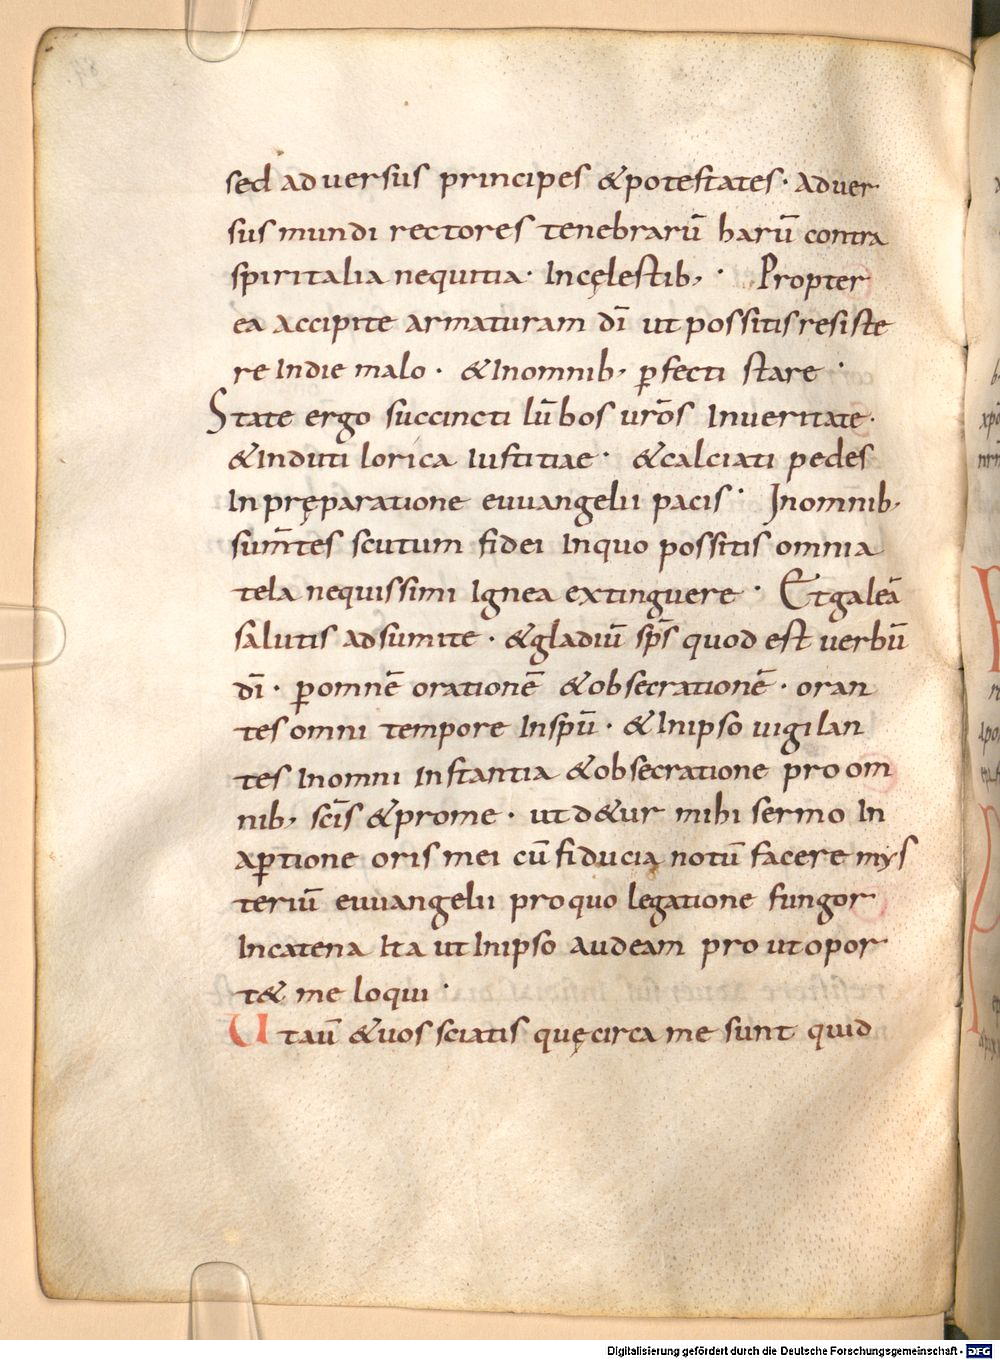 sed aduersus principes &potestates· Aduer
sus mundi rectores tenebrarū harū contra
spiritalia nequitia· Incęlestib, · Propter
ea accipite armaturam dī ut possitis resiste
re Indie malo · &Inomnib, ꝑfecti stare ·
State ergo succincti lūbos urōs Inueritate·
&Induti lorica Iustitiae· &calciati pedes
In pręparatione euuangelii pacis· Inomnib,
sum̄tes scutum fidei Inquo possitis omnia
tela nequissimi Ignea extinguere · Etgaleā
salutis adsumite · &gladiū sp̄s quod est uerbū
dī · ꝑomnē orationē &obsecrationē · oran
tes omni tempore Inspū · &Inipso uigilan
tes Inomni Instantia &obsecratione pro om
nib, scīs &prome · utd&ur mihi sermo In
aꝑtione oris mei cū fiducia notū facere mys
teriū euuangelii proquo legatione fungor
Incatena Ita utInipso audeam prout opor
t& me loqui ·
Utaū &uos sciatis quęcirca me sunt quid
Digitalisierung gefördert durch die Deutsche Forschungsgemeinschaft - DFG